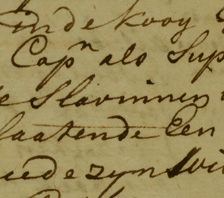 in de kooy
Cap.n als Sup
e Slavinnen
laatende Een
eede zyn Wi